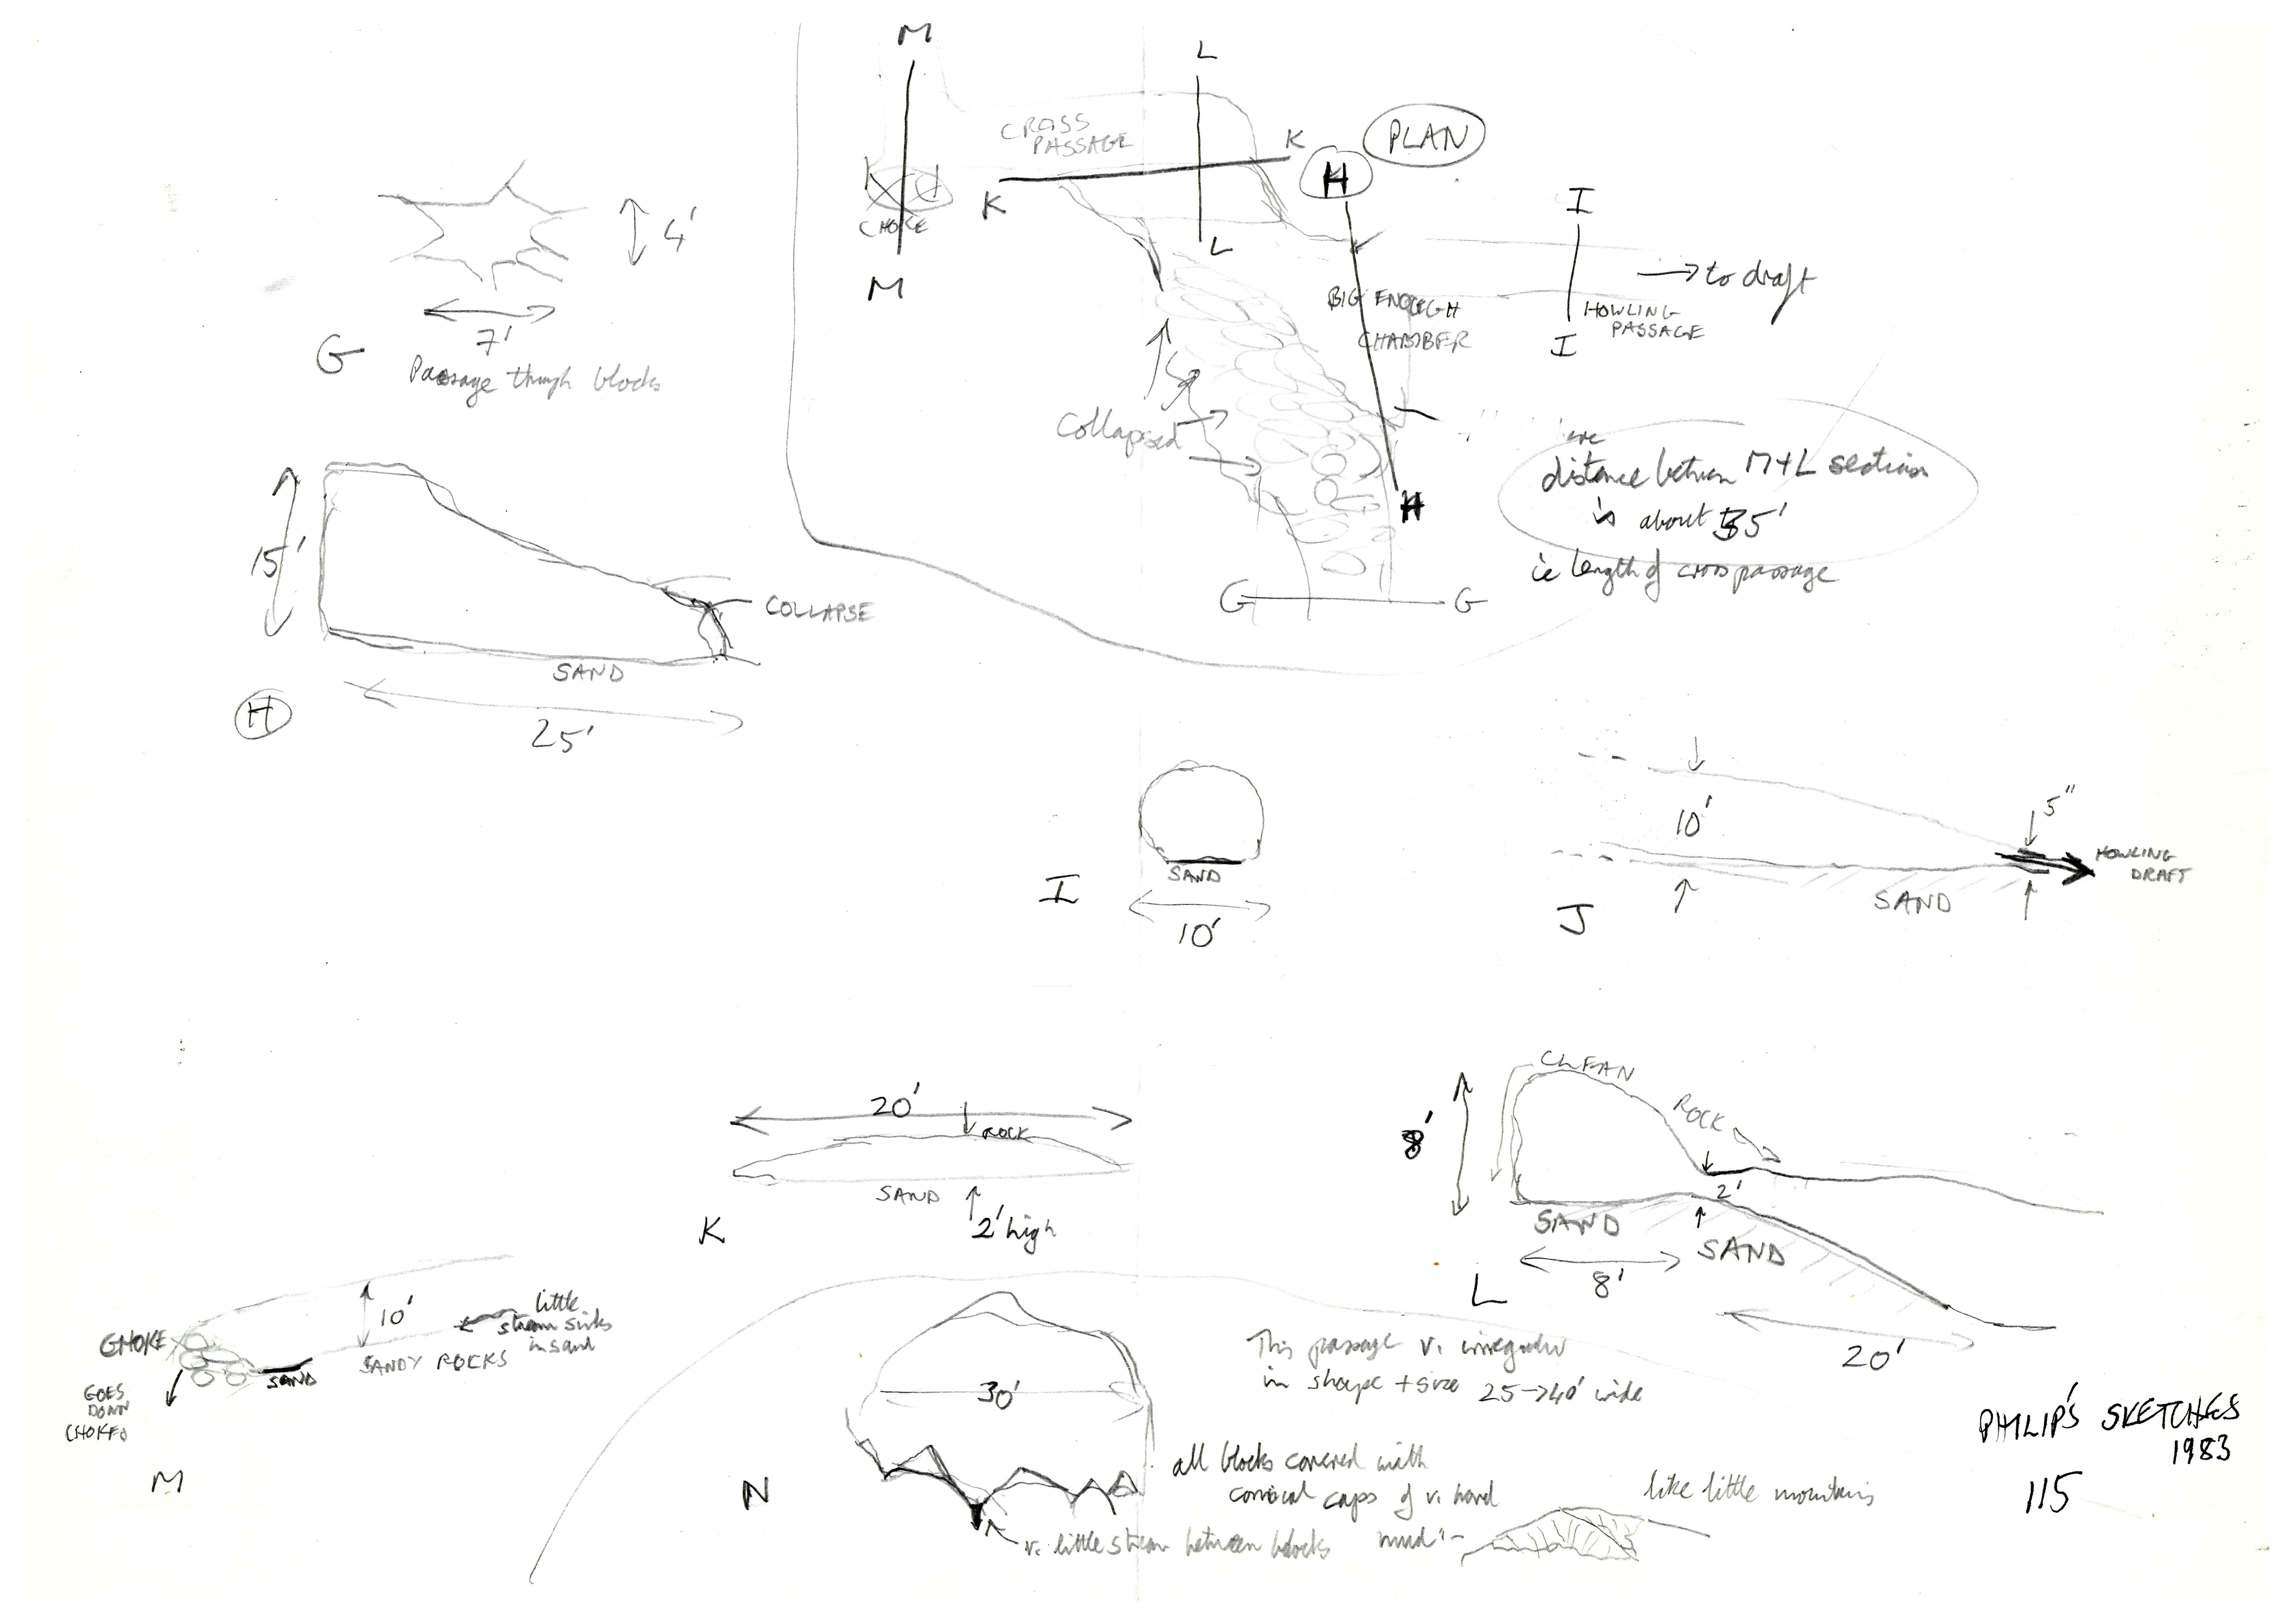 M
L
CROSS
PASSAGE
K
H
PLAN
K
CHOKE
L
M
I
→ to draft
BIG ENOUGH
CHAMBER
HOWLING
PASSAGE
I
4'
7'
G
Passage through blocks
Collapsed
distance between M+L section
is about 35'
ie length of cross passage
H
G
G
15'
COLLAPSE
SAND
H
25'
SAND
I
10'
10'
5"
HOWLING
DRAFT
SAND
J
20'
ROCK
SAND
2' high
K
CLEAN
ROCK
8'
2'
SAND
SAND
8'
L
20'
10'
little
stream sinks
in sand
CHOKE
SANDY ROCKS
SAND
GOES
DOWN
CHOKED
M
30'
This passage v. irregular
in shape + size 25→40' wide
all blocks covered with
conical caps of v. hard
mud
like little mountains
N
v. little stream between blocks
PHILIP'S SKETCHES
1983
115